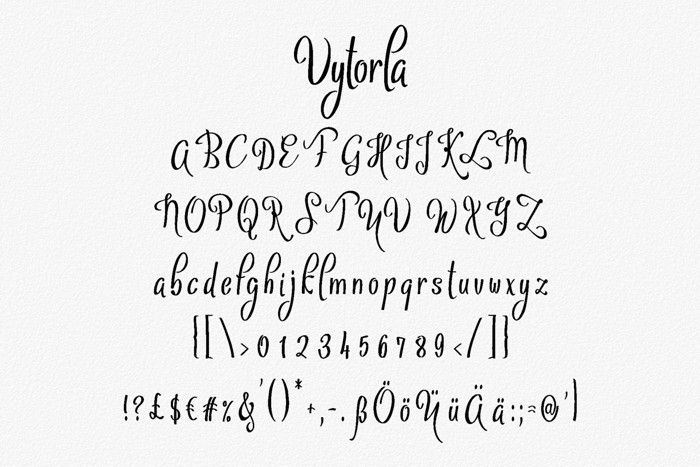 Vytorla
ABCDEFGHIJKLM
NOPQRSTUV WXYZ
abcdefghijklmnopqrstuvwxyz
{[\>0123456789</]}
!?£$€#%&'()*+,-.ßÖöÜüÄä:;=@'|